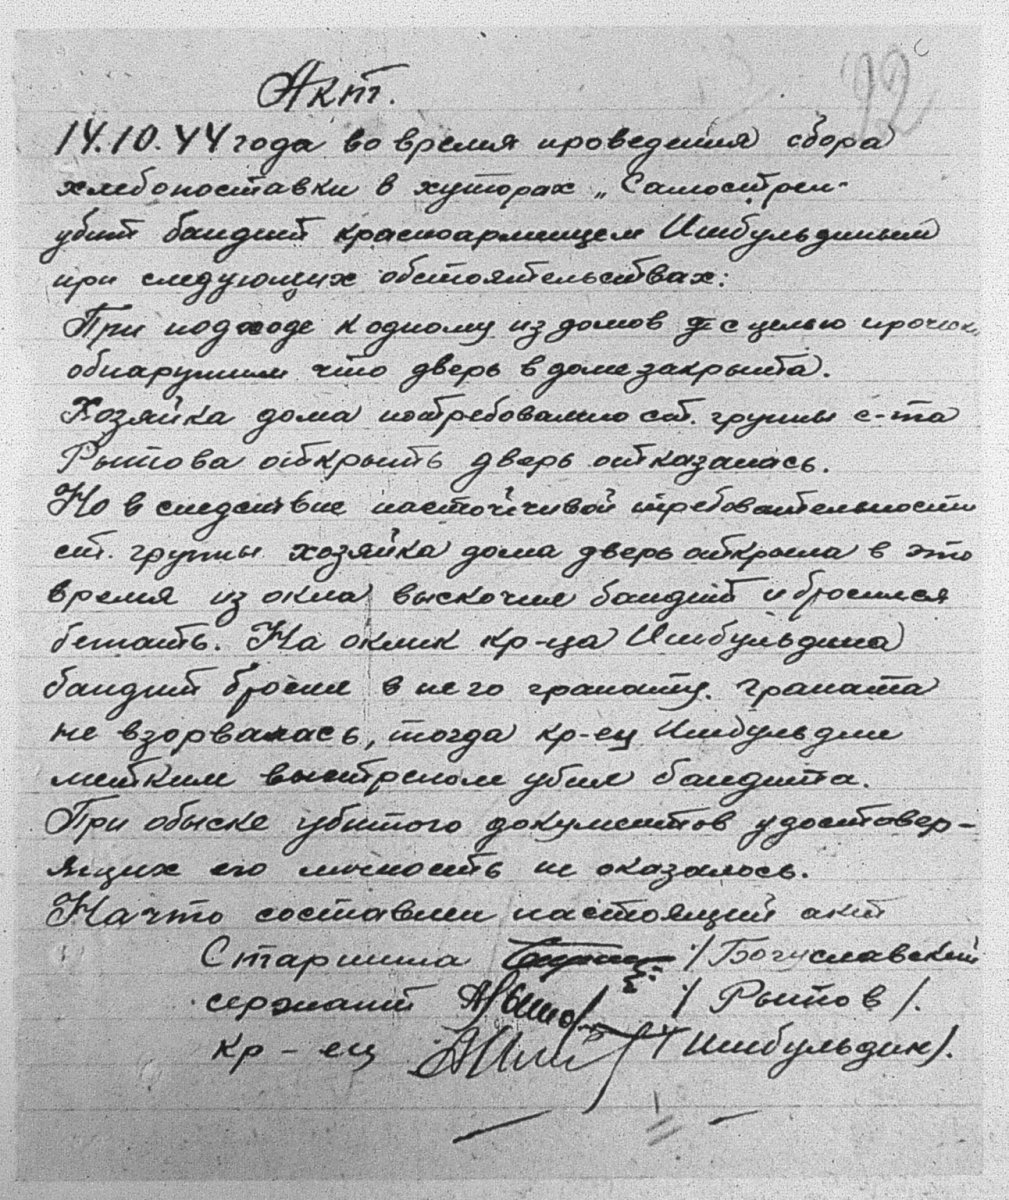 92
Акт.
14.10.44 года во время проведения сбора
хлебопоставки в хуторах „Самострел"
убит бандит красноармейцем Ишбульдиным
при следующих обстоятельствах:
При подходе к одному из домов с целью
обнаружили что дверь в доме закрыта.
Хозяйка дома по требованию ст. группы с-та
Рытова открыть дверь отказалась.
Но в следствие настойчивой требовательности
ст. группы хозяйка дома дверь открыла в это
время из окна выскочил бандит и бросился
бежать. На оклик кр-ца Ишбульдина
бандит бросил в него гранату. Граната
не взорвалась, тогда кр-ец Ишбульдин
метким выстрелом убил бандита.
При обыске убитого документов удостовер-
ящих его личность не оказалось.
На что составлен настоящий акт
Старшина /Богуславский
сержант /Рытов/.
кр-ец /Ишбульдин/.